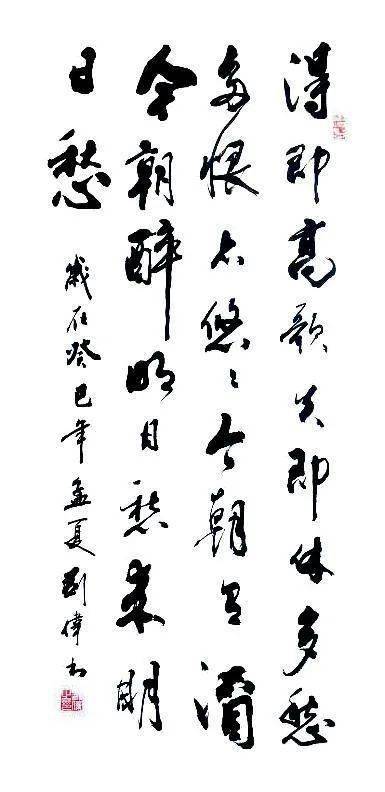 得即高歌失即休多愁
多恨亦悠々今朝有酒
今朝醉明日愁来明
日愁
歲在癸巳年孟夏劉偉书